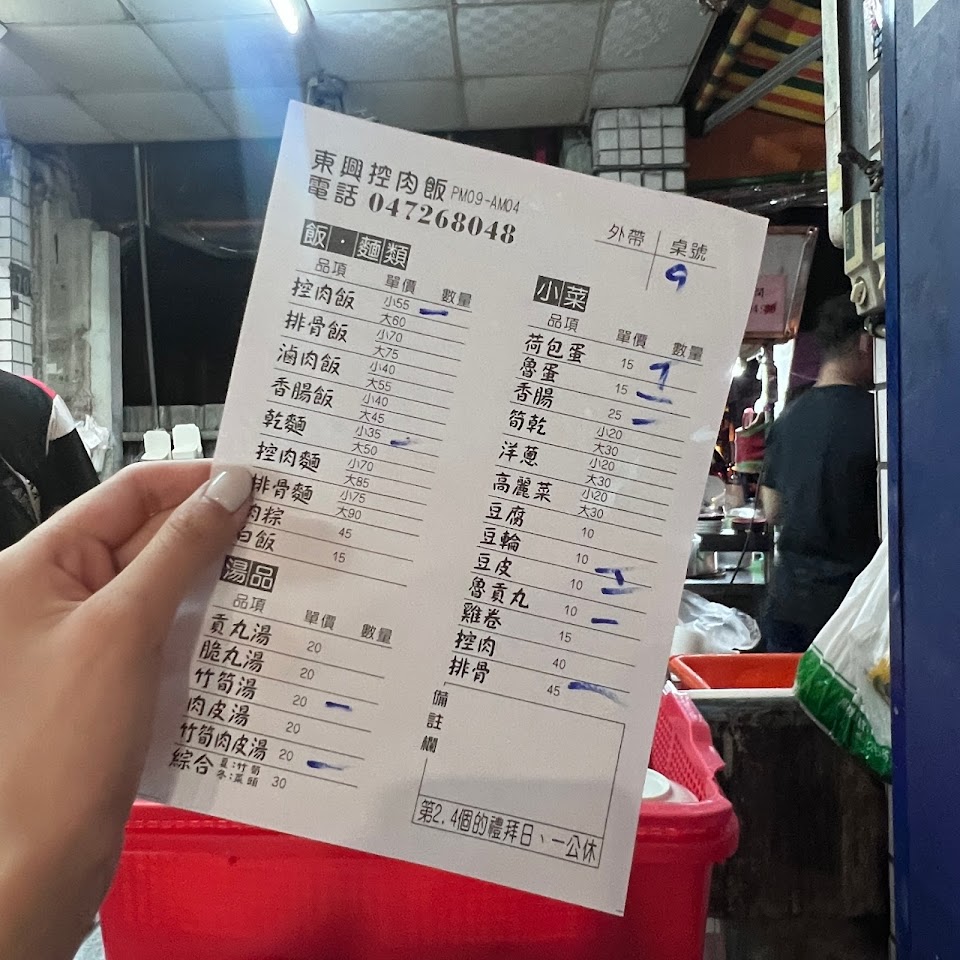 東興控肉飯 PM09-AM04
電話 047268048
外帶 桌號
9
飯・麵類
品項 單價 數量
控肉飯 小55 一
大60
排骨飯 小70
大75
滷肉飯 小40
大55
香腸飯 小40
大45
乾麵 小35 一
大50
控肉麵 小70
大85
排骨麵 小75
大90
肉粽 45
白飯 15
湯品
品項 單價 數量
貢丸湯 20
脆丸湯 20
竹筍湯 20 一
肉皮湯 20
竹筍肉皮湯 20 一
綜合 夏:竹筍 冬:菜頭 30
小菜
品項 單價 數量
荷包蛋 15 1
魯蛋 15 一
香腸 25 一
筍乾 小20
大30
洋蔥 小20
大30
高麗菜 小20
大30
豆腐 10
豆輪 10
豆皮 10
魯貢丸 10 一
雞卷 15
控肉 40
排骨 45 一
備註欄
第2.4個的禮拜日、一公休